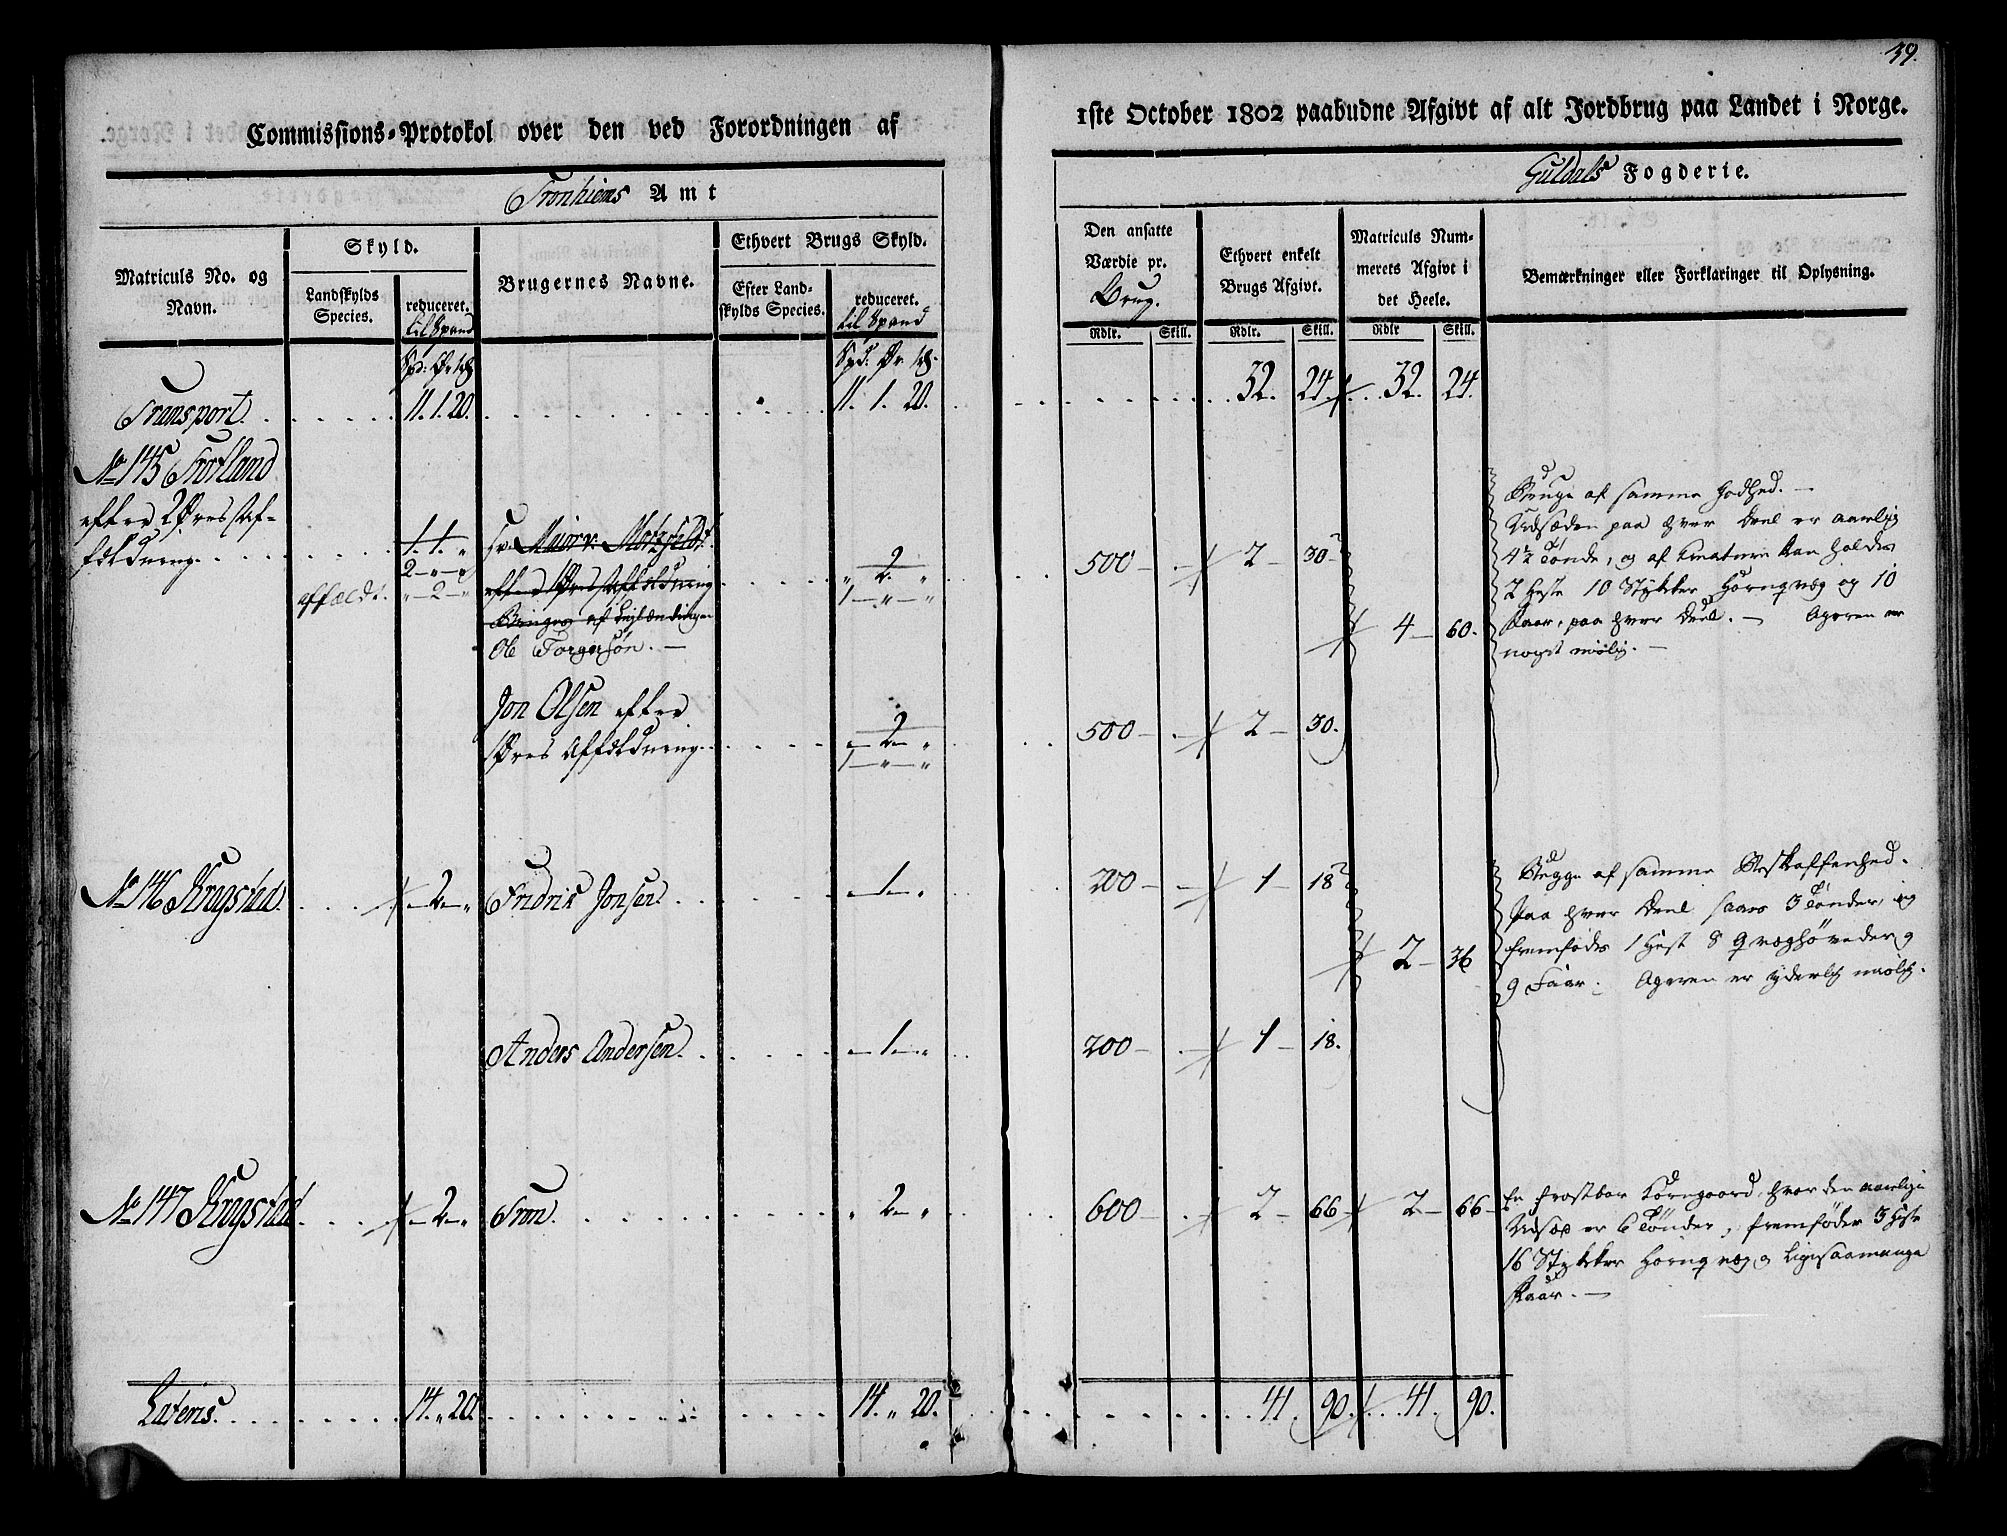 39.
Commissions-Protokol over den ved Forordningen af
1ste October 1802 paabudne Afgivt af alt Jordbrug paa Landet i Norge.
Tronhiems Amt
Guldals Fogderie.
Matriculs No. og Navn.
Skyld.
Landskylds Species.
reduceret.
til Spand
Brugernes Navne.
Ethvert Brugs Skyld.
Efter Landskylds Species.
reduceret.
til Spand
Den ansatte Værdie pr. Brug.
Ethvert enkelt Brugs Afgivt.
Matriculs Nummerets Afgivt i det Heele.
Bemærkninger eller Forklaringer til Oplysning.
Rdlr. Skill. Rdlr. Skill. Rdlr Skill.
Transport. 11. 1. 20. 11. 1. 20. 32. 24. 32. 24.
No 145 Trotland
efter 2 Øres Af-
fældning. 1. 1. „
2 „ „
affældt. „ 2 „
Sr. Maior v. Motzfeldt
efter Øres Affældning
Bruges af Leylændingen
Ole Torgersøn.
„ 2. „
1 „ „
500 2 30
4 60.
Bruge af samme Godhed.
Udsæden paa hver Deel er aarlig
4½ Tønde, og af Creature kan holdes
2 Heste 10 Stykker Hornqvæg og 10
Faar, paa hver Deel. Ageren er
noget misslig.
Jon Olsen efter
Øres Affældning.
2 „
1 „ „
500 2 30.
No 146 Krogstad. 2 „
Fridrik Jonsen. 1 „
200 1 18
2 36
Begge af samme Beskaffenhed.
Paa hver Deel saaes 3 Tønder, og
fremfødes 1 Hest 8 Qvæghøveder og
9 Faar. Ageren er yderlig misslig.
Anders Andersen. 1 „
200 1 18.
No 147 Krogstad. 2 „
Tron. „ 2 „
600 2 66 2 66
En frostbar Korngaard, hvor den aarlige
Udsæd er 6 Tønder, fremføder 3 Heste
16 Stykker Hornqvæg og ligesaamange
Faar.
Lateris. 14. „ 20. 14. „ 20. 41. 90. 41. 90.